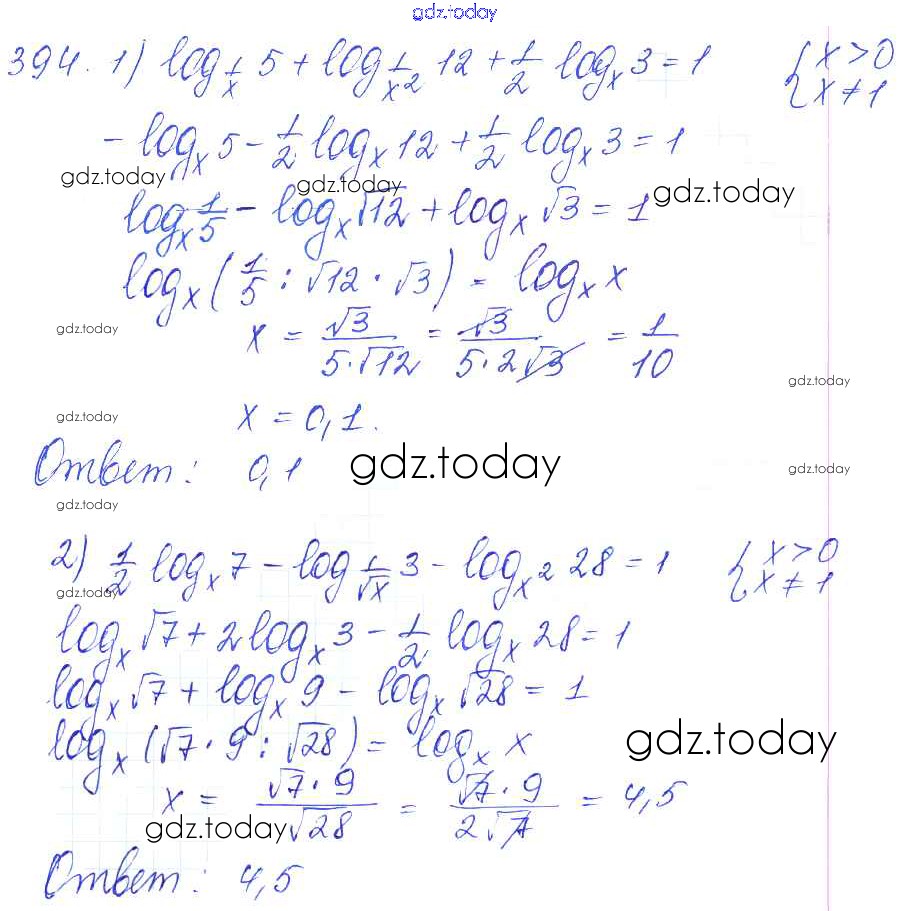 gdz.today
394. 1) log_{1/x} 5 + log_{1/x²} 12 + 1/2 log_x 3 = 1 { x > 0
x ≠ 1
- log_x 5 - 1/2 log_x 12 + 1/2 log_x 3 = 1
gdz.today gdz.today gdz.today
log_x 1/5 - log_x √12 + log_x √3 = 1
log_x (1/5 : √12 · √3) = log_x x
gdz.today
x = √3/(5·√12) = √3/(5·2√3) = 1/10
gdz.today
gdz.today
x = 0,1.
Ответ: 0,1 gdz.today gdz.today
gdz.today
2) 1/2 log_x 7 - log_{1/√x} 3 - log_{x²} 28 = 1 { x > 0
x ≠ 1
gdz.today
log_x √7 + 2 log_x 3 - 1/2 log_x 28 = 1
log_x √7 + log_x 9 - log_x √28 = 1
log_x (√7 · 9 : √28) = log_x x gdz.today
x = √7·9/√28 = √7·9/(2√7) = 4,5
gdz.today
Ответ: 4,5